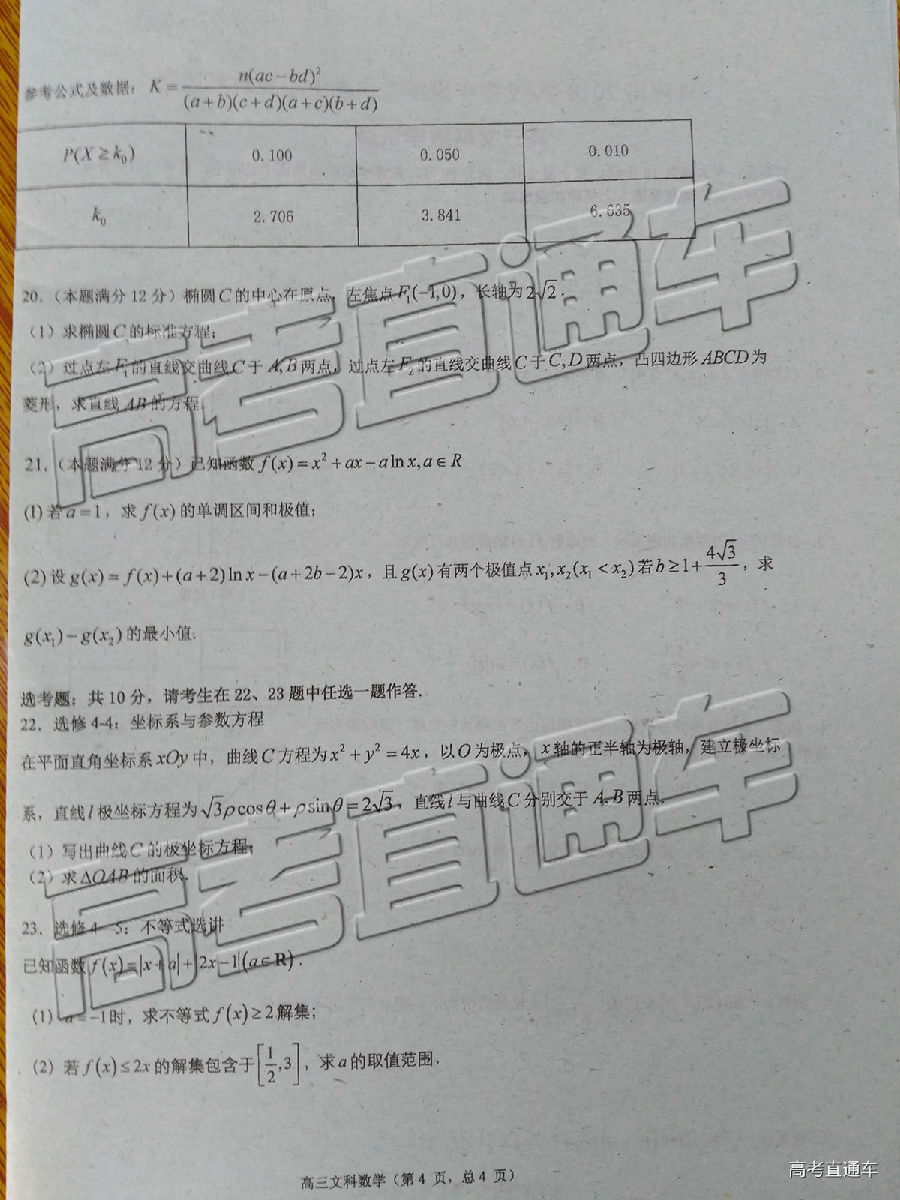 参考公式及数据：K = n(ac-bd)² / (a+b)(c+d)(a+c)(b+d)
P(X≥k₀) 0.100 0.050 0.010
k₀ 2.706 3.841 6.635
20.（本题满分12分）椭圆C的中心在原点，左焦点F₁(-1,0)，长轴为2√2.
（1）求椭圆C的标准方程；
（2）过点左F₁的直线交曲线C于A,B两点，过点左F₂的直线交曲线C于C,D两点，凸四边形ABCD为
菱形，求直线AB的方程.
21.（本题满分12分）已知函数f(x)=x²+ax-alnx,a∈R
(1)若a=1，求f(x)的单调区间和极值；
(2)设g(x)=f(x)+(a+2)lnx-(a+2b-2)x，且g(x)有两个极值点x₁,x₂(x₁<x₂)若b≥1+4√3/3，求
g(x₁)-g(x₂)的最小值.
选考题：共10分，请考生在22、23题中任选一题作答.
22．选修4-4：坐标系与参数方程
在平面直角坐标系xOy中，曲线C方程为x²+y²=4x，以O为极点，x轴的正半轴为极轴，建立极坐标
系，直线l极坐标方程为√3ρcosθ+ρsinθ=2√3，直线l与曲线C分别交于A,B两点.
（1）写出曲线C的极坐标方程；
（2）求ΔOAB的面积.
23．选修4—5：不等式选讲
已知函数f(x)=|x+a|+|2x-1|(a∈R).
（1）a=-1时，求不等式f(x)≥2解集；
（2）若f(x)≤2x的解集包含于[1/2,3]，求a的取值范围.
高三文科数学（第4页，总4页）
高考直通车
高考直通车
高考直通车